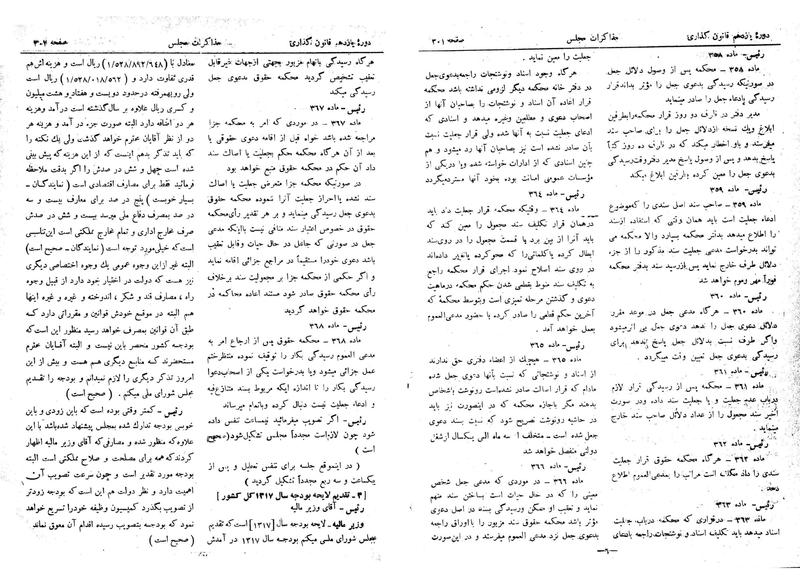 دورهٔ یازدهم قانون گذاری
مذاکرات مجلس
صفحه ۳۰۱
رئیس- ماده ۳۵۸
ماده ۳۵۸ – محکمه پس از وصول دلائل جعل
در صورتیکه رسیدگی بدعوی جعل را مؤثر بداند قرار
رسیدگی بادعاء جعل را صادر مینماید
مدیر دفتر در ظرف دو روز قرار محکمه را بطرفین
ابلاغ و یک نسخه از دلائل جعل را برای صاحب سند
میفرستد و باو اخطار میکند که در ظرف ده روز کتباً
پاسخ بدهد و پس از وصول پاسخ مدیر دفتر وقت رسیدگی
بدعوی جعل را معین کرده بطرفین ابلاغ میکند
رئیس- ماده ۳۵۹
ماده ۳۵۹– صاحب سند اصل سندی را که موضوع
ادعاء جعلیت است باید همان وقتی که استفاده از سند
را اطلاع میدهد بدفتر محکمه بسپارد والا محکمه می
تواند بدرخواست مدعی جعلیت سند مذکور را از جزء
دلائل طرف خارج نماید پس از رسید سند بدفتر محکمه
فوراً مهر و موم خواهد شد
رئیس- ماده ۳۶۰
ماده ۳۶۰ – هرگاه مدعی جعل در موعد مقرر
دلائل جعل را ندهد دعوی جعل بی اثر میشود
واگر طرف نسبت بدلائل جعل پاسخ ندهد برای
رسیدگی بدعوی جعل تعیین وقت میگردد.
رئیس- ماده ۳۶۱
ماده ۳۶۱ – محکمه پس از رسیدگی قرار لازم
در باب عدم جعلیت و یا جعلیت سند داده و در صورت
اخیر سند مجعول را از عداد دلائل صاحب سند خارج
مینماید
رئیس- ماده ۳۶۲
ماده ۳۶۲ – هرگاه محکمه حقوق قرار جعلیت
سندی را داد مکلف است مراتب را بمدعی العموم اطلاع
دهد.
رئیس- ماده ۳۶۳
ماده ۳۶۳– در قراری که محکمه در باب جعلیت
اسناد میدهد باید تکلیف اسناد و نوشتجات راجعه بادعای
جعلیت را معین نماید .
هرگاه وجود اسناد و نوشتجات راجعه بدعوی جعل
در دفتر خانه محکمه دیگر لزومی نداشته باشد محکمه
قرار اعاده آن اسناد و نوشتجات را بصاحبان آنها از
اصحاب دعوی و مطلعین وغیره میدهد و اسنادی که
ادعای جعلیت نسبت به آنها شده ولی قرار جعلیت نسبت
بآن صادر نشده است نیز بصاحبان آنها رد میشود و هم
چنین اسنادی که از ادارات خواسته شده ویا در یکی از
مؤسسات عمومی امانت بوده بخود آنها مسترد میگردد
رئیس- ماده ۳۶۴
ماده ۳۶۴ – وقتیکه محکمه قرار جعلیت داد باید
در همان قرار تکلیف سند مجعول را معین کند که
باید آنرا از بین برد یا قسمت مجعول را در روی سند
ابطال کرده یا کلماتی را که محو کرده یا تغییر داده‌اند
در روی سند اصلاح نمود اجرای قرار محکمه راجع
به تکلیف سند منوط بقطعی شدن حکم محکمه در ماهیت
دعوی و گذشتن مرحله تمیزی است و بتوسط محکمه که
آخرین حکم قطعی را صادر کرده با حضور مدعی‌العموم
بعمل خواهد آمد .
رئیس- ماده ۳۶۵
ماده ۳۶۵ – هیچیک از اعضاء دفتری حق ندارند
از اسناد و نوشتجاتی که نسبت بآنها دعوی جعل شده
مادام که قرار اسالت صادر نشده است رونوشت باشخاص
بدهند مگر باجازه محکمه که در اینصورت نیز باید
در حاشیه رونوشت تصریح شود که نسبت بسند دعوی
جعل شده است – متخلف ا سه ماه الی یکسال از شغل
دولتی منفصل خواهد شد
رئیس- ماده ۳۶۶
ماده ۳۶۶ – در موردی که مدعی جعل شخص
معینی را که در حال حیات است بساختن سند متهم
نماید و تعقیب او ممکن و رسیدگی بسند در اصل دعوی
مؤثر باشد محکمه حقوق سند مزبور را با اوراق راجعه
بدعوی جعل نزد مدعی العموم میفرستد و در این صورت
–۶–
دورهٔ یازدهم قانون گذاری
مذاکرات مجلس
صفحه ۳۰۲
هرگاه رسیدگی باتهام مزبور جهتی از جهات غیر قابل
تعقیب تشخیص گردید محکمه حقوق بدعوی جعل
رسیدگی میکند
رئیس- ماده ۳۶۷
ماده ۳۶۷– در موردی که امر به محکمه جزا
مراجعه شده باشد خواه قبل از اقامه دعوی حقوقی یا
بعد از آن هرگاه محکمه حکم بجعلیت یا اصالت سند
داد آن حکم در محکمه حقوق متبع خواهد بود
در صورتیکه محکمه جزا متعرض جعلیت یا اصالت
سند نشده یا احراز جعلیت آنرا ننموده محکمه حقوق
بدعوی جعل رسیدگی مینماید و بر هر تقدیر رأی محکمه
حقوق در خصوص اعتبار سند منافی نیست با اینکه مدعی
جعل در صورتی که جاعل در حال حیات و قابل تعقیب
باشد دعوی خود را مستقیماً در مراجع جزائی اقامه نماید
و اگر حکمی از محکمه جزا بر مجعولیت سند برخلاف
رأی محکمه حقوق صادر شود مستند اعاده محاکمه در
محکمه حقوق خواهد گردید
رئیس- ماده ۳۶۸
ماده ۳۶۸ – محکمه حقوق پس از ارجاع امر به
مدعی العموم رسیدگی بکار را توقیف نموده منتظر ختم
عمل جزائی میشود ویا بدرخواست یکی از اصحاب دعوا
رسیدگی بکار را تا اندازه اینکه مربوط بسند متنازع‌فیه
و ادعاء جعلیت نیست دنبال کرده و باتمام میرساند
رئیس- اگر تصویب میفرمائید نیمساعت تنفس داده
شود چون لازم است مجدداً مجلس تشکیل شود (صحیح
است)
( در اینموقع جلسه برای تنفس تعطیل و پس از
یکساعت و سه ربع مجدداً تشکیل گردید )
[ ۴- تقدیم لایحه بودجه سال ۱۳۱۷ کل کشور ]
رئیس – آقای وزیر مالیه
وزیر مالیه – لایحه بودجه سال [۱۳۱۷] است که تقدیم
مجلس شورای ملی میکنم بودجه سال ۱۳۱۷ در آمدش
معادل با (۱/۵۲۸/۸۹۲/۶۴۸) ریال است و هزینه اش هم
قدری تفاوت دارد و (۱/۵۲۸/۰۱۸/۵۶۲) ریال است
ولی رویهمرفته در حدود دویست و هفتاد و هشت میلیون
و کسری ریال علاوه بر سال گذشته است در آمد و هزینه
هر دو اضافه دارد البته صورت جزء در آمد و هزینه هر
دو از نظر آقایان محترم خواهد گذشت ولی یک نکته را
که باید تذکر بدهم اینست که از این هزینه که پیش بینی
شده است چهل و شش در صدش را اگر بدقت ملاحظه
فرمائید فقط برای مصارف اقتصادی است ( نمایندگان –
بسیار خوبست ) پنج در صد برای معارف بیست و سه
در صد بمصرف دفاع ملی میرسد بیست و شش در صدش
صرف مخارج اداری و تمام مخارج مملکتی است این تناسبی
است که خیلی مورد توجه است (نمایندگان – صحیح است)
البته غیر از این وجوه عمومی یک وجوه اختصاصی دیگری
نیز هست که دولت در اختیار خود دارد از قبیل وجوه
راه ، مصارف قند و شکر ، اندوخته و غیره و غیره اینها
هم البته در موقع خودش قوانین و مقرراتی دارد که
طبق آن قوانین بمصرف خواهد رسید منظور این است که
بودجه کشور منحصر باین نیست و البته آقایان محترم
مستحضرند که منابع دیگری هم هست و بیش از این
امروز تذکر دیگری را لازم نمیدانم و بودجه را تقدیم
مجلس شورای ملی میکنم . ( صحیح است )
رئیس- کمتر وقتی بوده است که باین زودی و باین
خوبی بودجه تدارک شده بمجلس پیشنهاد شده باشد با این
علاوه که منظور شده و مصارفی که آقای وزیر مالیه اظهار
کردند که همه برای مصلحت و صلاح مملکتی است البته
بودجه مورد تقدیر است و چون سرعت تصویب آن
اهمیت دارد و نظر دولت هم این است که بودجه زودتر
از تصویب بگذرد کمیسیون وظیفه خود را تسریع خواهد
نمود که بودجه بتصویب رسیده اقدام آن معوق نماند
( صحیح است )